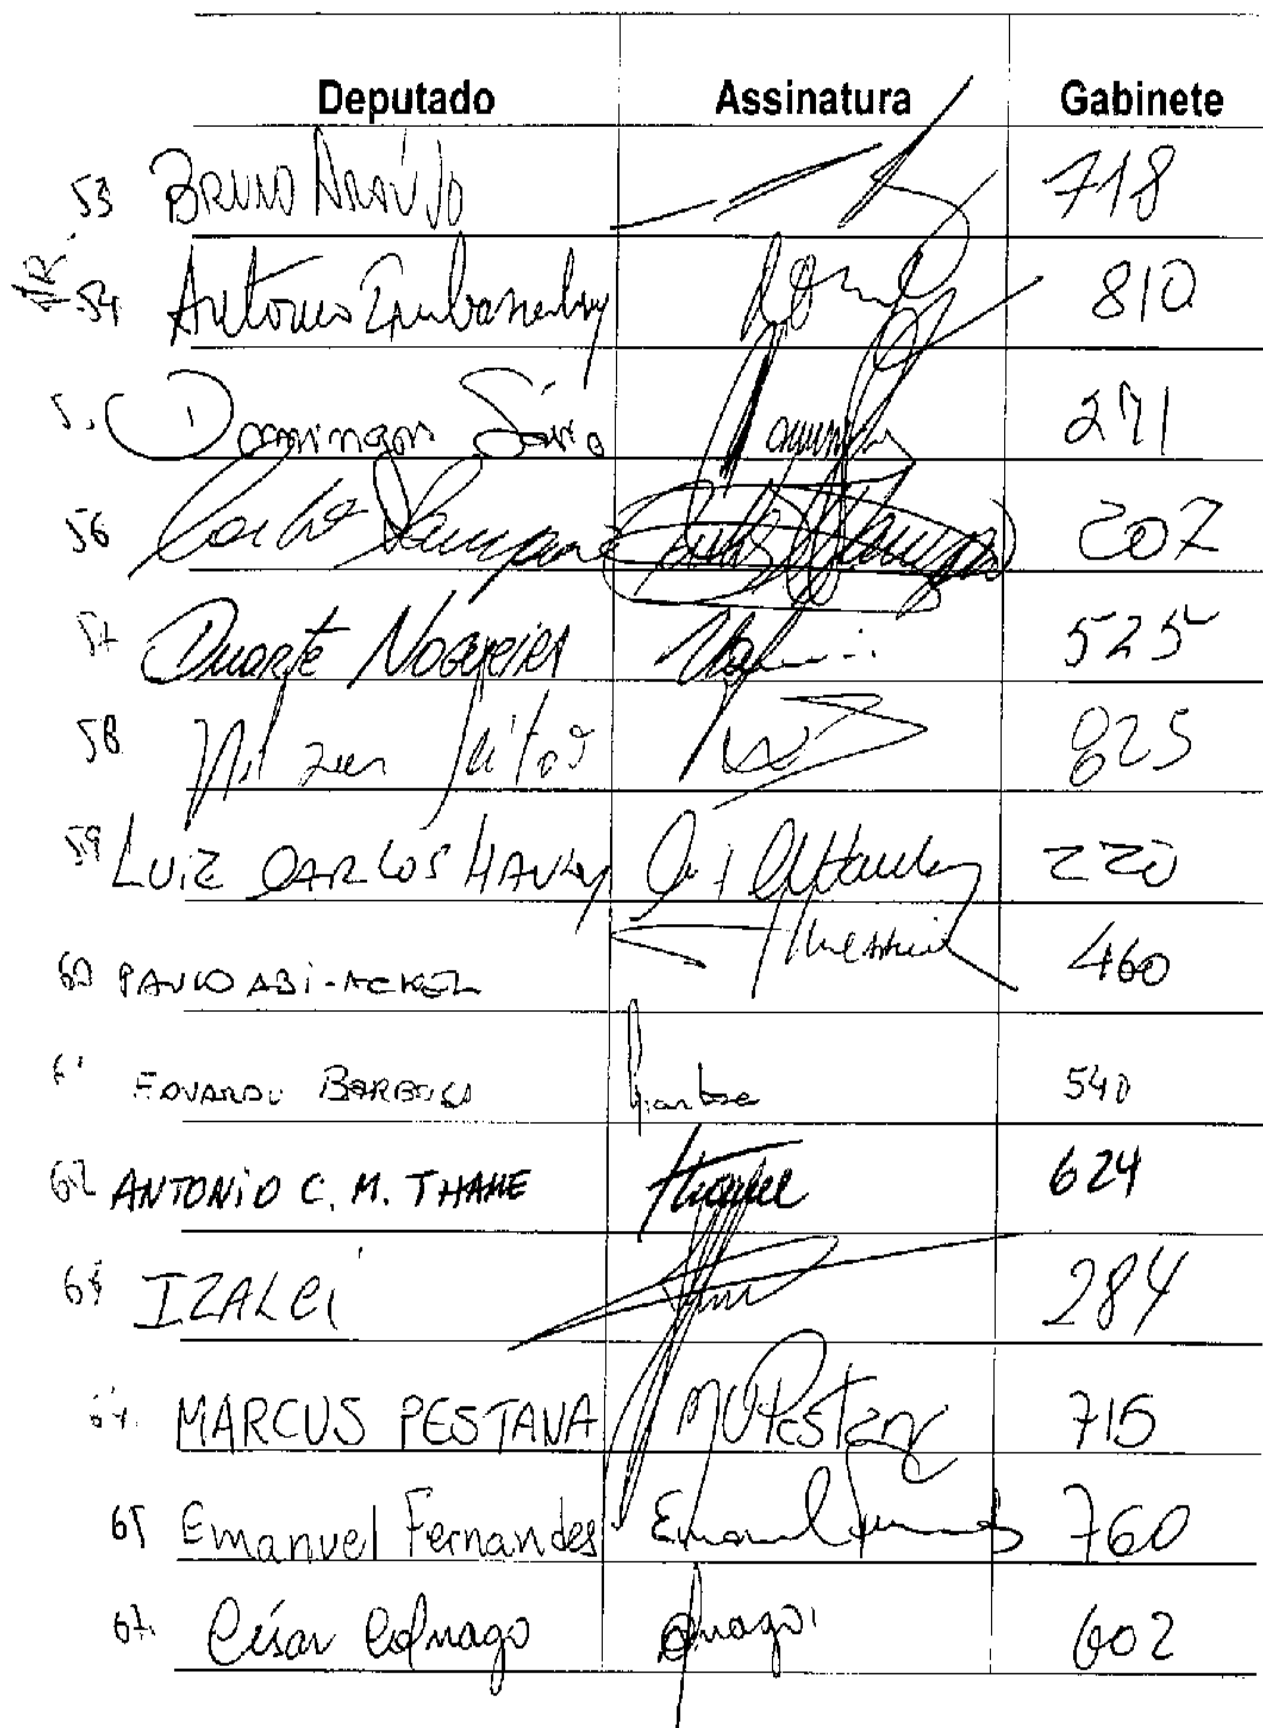 Deputado Assinatura Gabinete
53 BRUNO ARAÚJO 718
54 Antonio Imbassahy 810
5. Domingos Sávio 271
56 Carlos Sampaio 207
57 Duarte NOGUEIRA 525
58 Nilson Leitão 825
59 LUIZ CARLOS HAULY 220
60 PAULO ABI-ACKEL 460
6 EDUARDO BARBOSA Barbosa 540
62 ANTONIO C. M. THAME Thame 624
63 IZALCI 284
64. MARCUS PESTANA MVPestana 715
65 Emanuel Fernandes Emanuel Fernandes 760
67. César Colnago Colnago 602